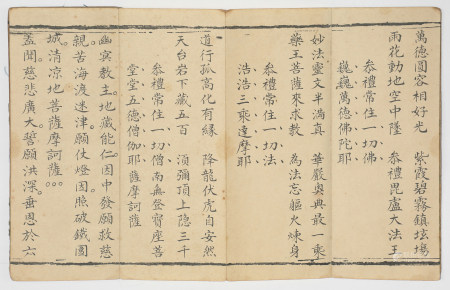 萬德圓容相好光　紫霞碧霧鎮坛場
雨花動地空中墜　叅禮毘盧大法王
叅禮常住一切佛
巍巍萬德佛陀耶
妙法靈文半滿真　華嚴奧典最一乘
藥王菩薩來求教　為法忘軀火煉身
叅禮常住一切法
浩浩三乘達摩耶
道行孤高化有緣　降龍伏虎自安然
天台岩下藏五百　須彌頂上隱三千
叅禮常住一切僧南無登寶座菩
堂堂五德僧伽耶　薩摩訶薩
幽冥教主地藏能仁因中發願救慈
親苦海渡迷津願仗燈圓照破鐵圍
城清凉地菩薩摩訶薩
蓋聞慈悲廣大誓願洪深垂恩於六